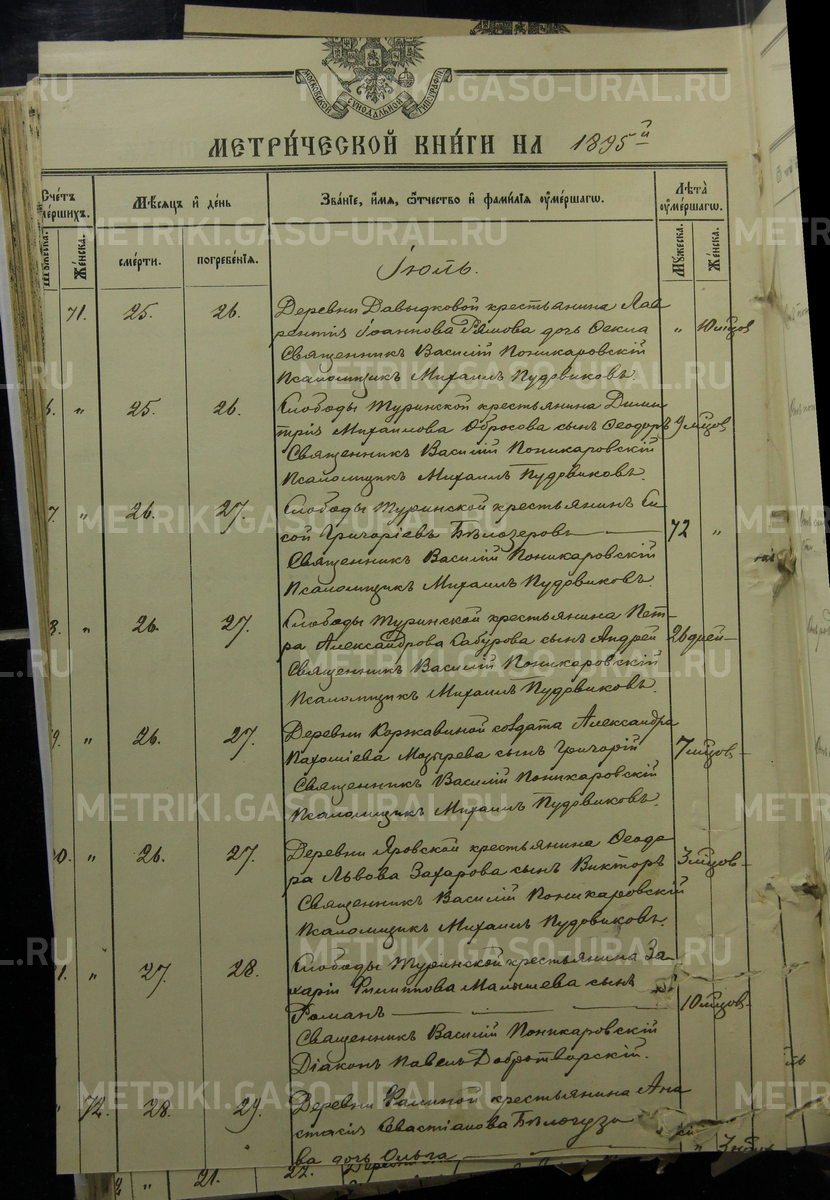 МОСКОВСКОЙ СѴНОДАЛЬНОЙ ТИПОГРАФІИ
METRIKI.GASO-URAL.RU
МЕТРИ́ЧЕСКОЙ КНИ́ГИ НА 1895й
Счетъ Мѣсяцъ и день Званіе, имя, отчество и фамилія умершагѡ. Лѣта
умершагѡ.
Женска. смерти. погребенія. Мужеска. Женска.
Іюль.
71. 25. 26. Деревни Давыдковой крестьянина Лав-
рентія Іоаннова дочь Ѳекла " 10 мѣсцов
Священникъ Василій Поникаровскій
Псаломщикъ Михаилъ Пудовиковъ.
" 25. 26. Слободы Туринской крестьянина Дими-
трія Михаилова Обросова сынъ Ѳеодоръ 9 мѣсцов
Священникъ Василій Поникаровскій
Псаломщикъ Михаилъ Пудовиковъ.
7. " 26. 27. Слободы Туринской крестьянинъ Сы-
сой Григоріевъ Бѣлозеровъ — 72 "
Священникъ Василій Поникаровскій
Псаломщикъ Михаилъ Пудовиковъ.
8. " 26. 27. Слободы Туринской крестьянина Пет-
ра Александрова Сабурова сынъ Андрей 26 дней —
Священникъ Василій Поникаровскій
Псаломщикъ Михаилъ Пудовиковъ.
9. " 26. 27. Деревни Коржавиной солдата Александра
Пахоміева Мозырева сынъ Григорій 7 мѣсцов —
Священникъ Василій Поникаровскій
Псаломщикъ Михаилъ Пудовиковъ.
0. " 26. 27. Деревни Яровской крестьянина Ѳеодо-
ра Львова Захарова сынъ Викторъ 3 мѣсцов —
Священникъ Василій Поникаровскій
Псаломщикъ Михаилъ Пудовиковъ.
1. " 27. 28. Слободы Туринской крестьянина За-
харіи Филиппова Малышева сынъ
Романъ — 10 мѣсцов —
Священникъ Василій Поникаровскій
Діаконъ Павелъ Добротворскій.
" 72. 28. 29. Деревни Фалиной крестьянина Ана-
стасія Севастіанова Бѣлогузо-
ва дочь Ольга — "
" 21. 22.